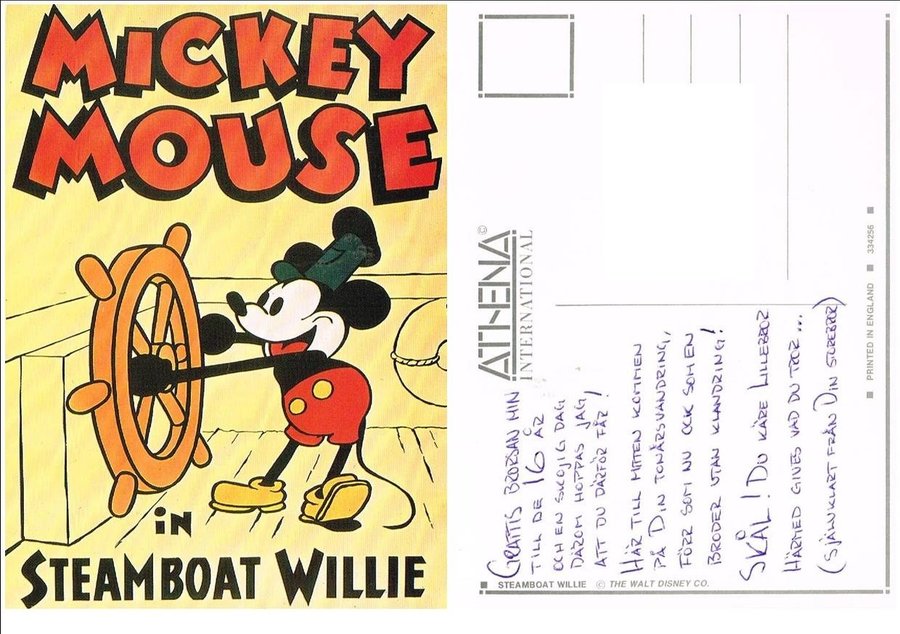 MICKEY
MOUSE
in
STEAMBOAT WILLIE
ATHENA©
INTERNATIONAL
GRATTIS BRORSAN MIN
TILL DE 16 ÅR
OCH EN SKOJIG DAG
DÄROM HOPPAS JAG,
ATT DU DÄRFÖR FÅR!
HÄR TILL MITTEN KOMMEN
PÅ DIN TONÅRSVANDRING,
FÖRR SOM NU OCK SOM EN
BRODER UTAN KLANDRING!
SKÅL! DU KÄRE LILLEBROR
HÄRMED GIVES VAD DU TROR...
(SJÄWKLART FRÅN DIN STOREBROR)
STEAMBOAT WILLIE © THE WALT DISNEY CO.
PRINTED IN ENGLAND 334256